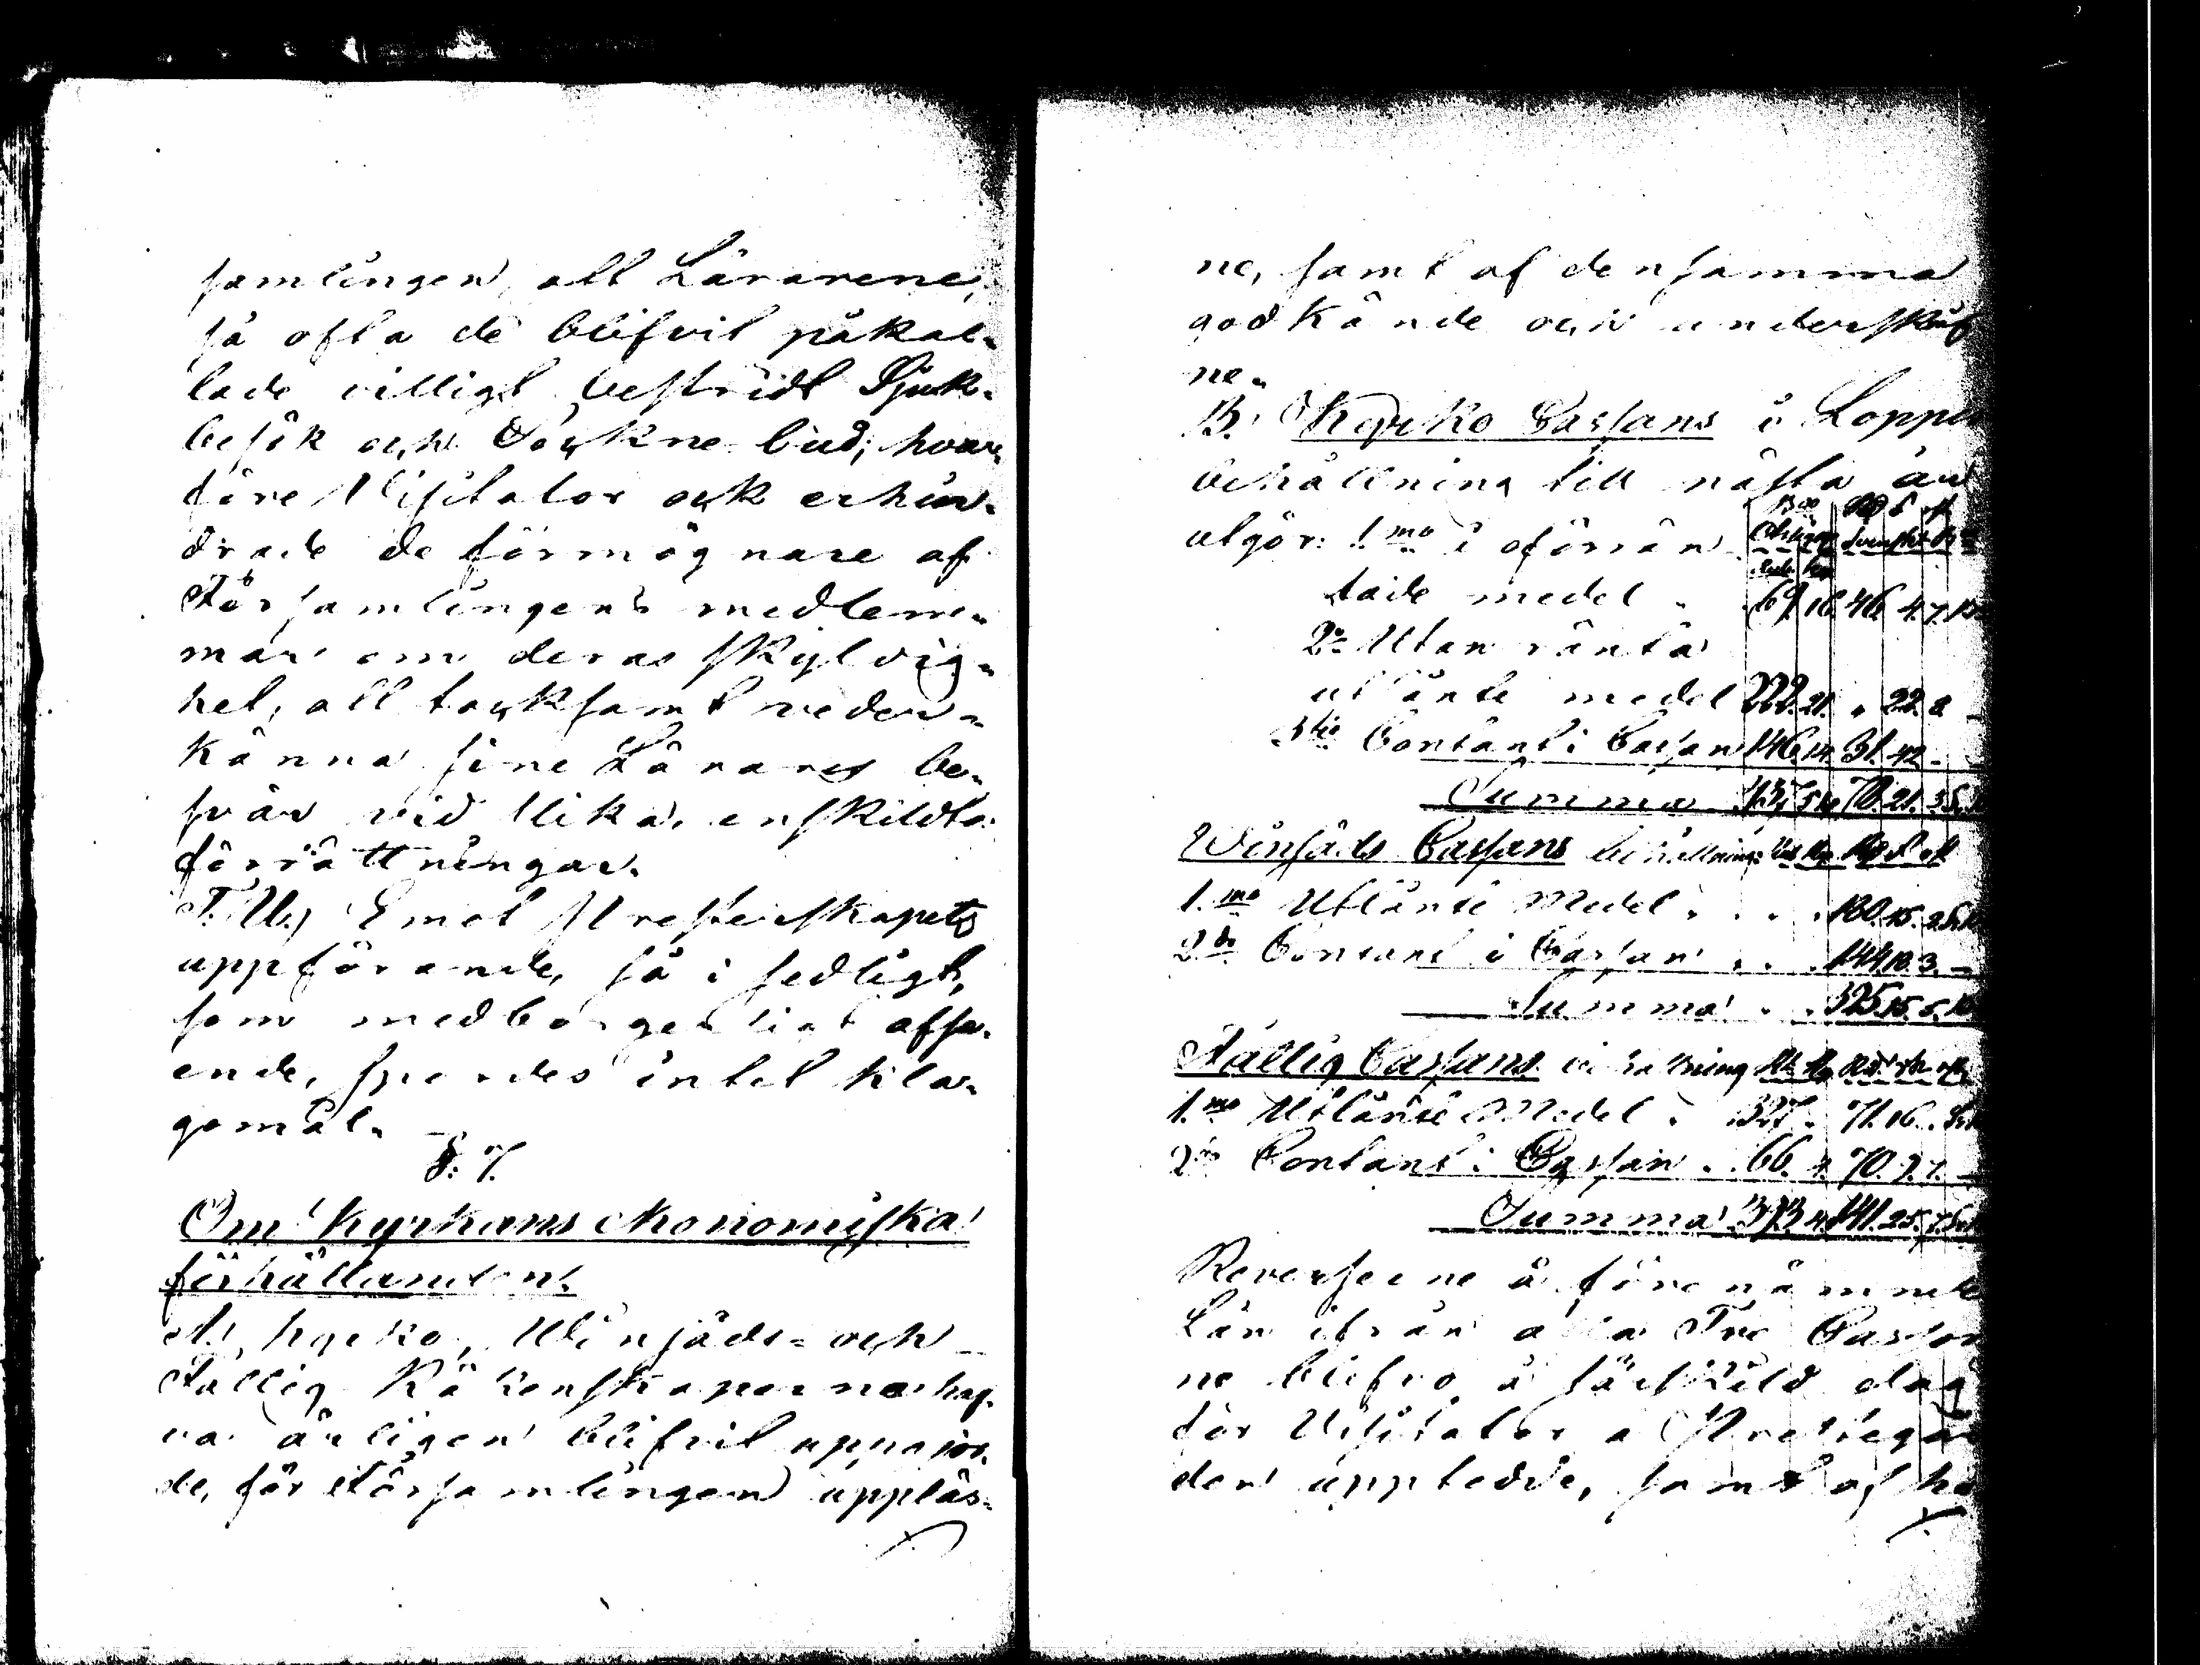 samlingen, att Lärarene,
så ofta de blifvit påkal-
lade villigt bestridt Sjuk-
besök och Sockne bud; hvar-
före Visitator ock erhin-
drade de förmögnare af
Församlingens medlem-
mar om deras skyldig-
het, att tacksamt veder-
känna sine Lärares be-
svär vid slika enskildta
förrättningar.
F. Ub.) Emot Presterskapets
uppförande, så i sedligt,
som medborgerligt afse-
ende, spordes intet kla-
gomål.
§. 7.
Om Kyrkans ekonomiska
förhållanden.
A, Kyrko, Winsäds- och
Fattig Räkenskaperna haf-
va årligen blifvit uppgjor-
de, för Församlingen uppläs-
ne, samt af densamma
godkände och underskrif
ne.
B. Kyrko Cassans i Loppis
behållning till nästa år
utgör: 1mo i oförrän
tade medel . 69. 16. 46 4.7.
2o Utan ränta
utlånte medel 222.21. „ 22. 8 –
3tio Contant i Cassan 146.14. 31. 42 –
Summa 78.21.
Winsäds Cassans behållning:
1.mo Utlånte Medel . . . . 180.15.
2do Contant i Cassan . . . 144.18.3. –
Summa . . 325.15.5.
Fattig Cassans behållning
1.mo Utlånte Medel . 327 . 71.16.
2do Contant i Cassan . 66. 4. 70.9.7. –
Summa 393.4. 141.25.7.
Reverserne å förenämnde
Lån ifrån alla Tre Cassor
ne blefvo å särskild dag
för Visitator å Prestegår
den uppteedde, samt af ho